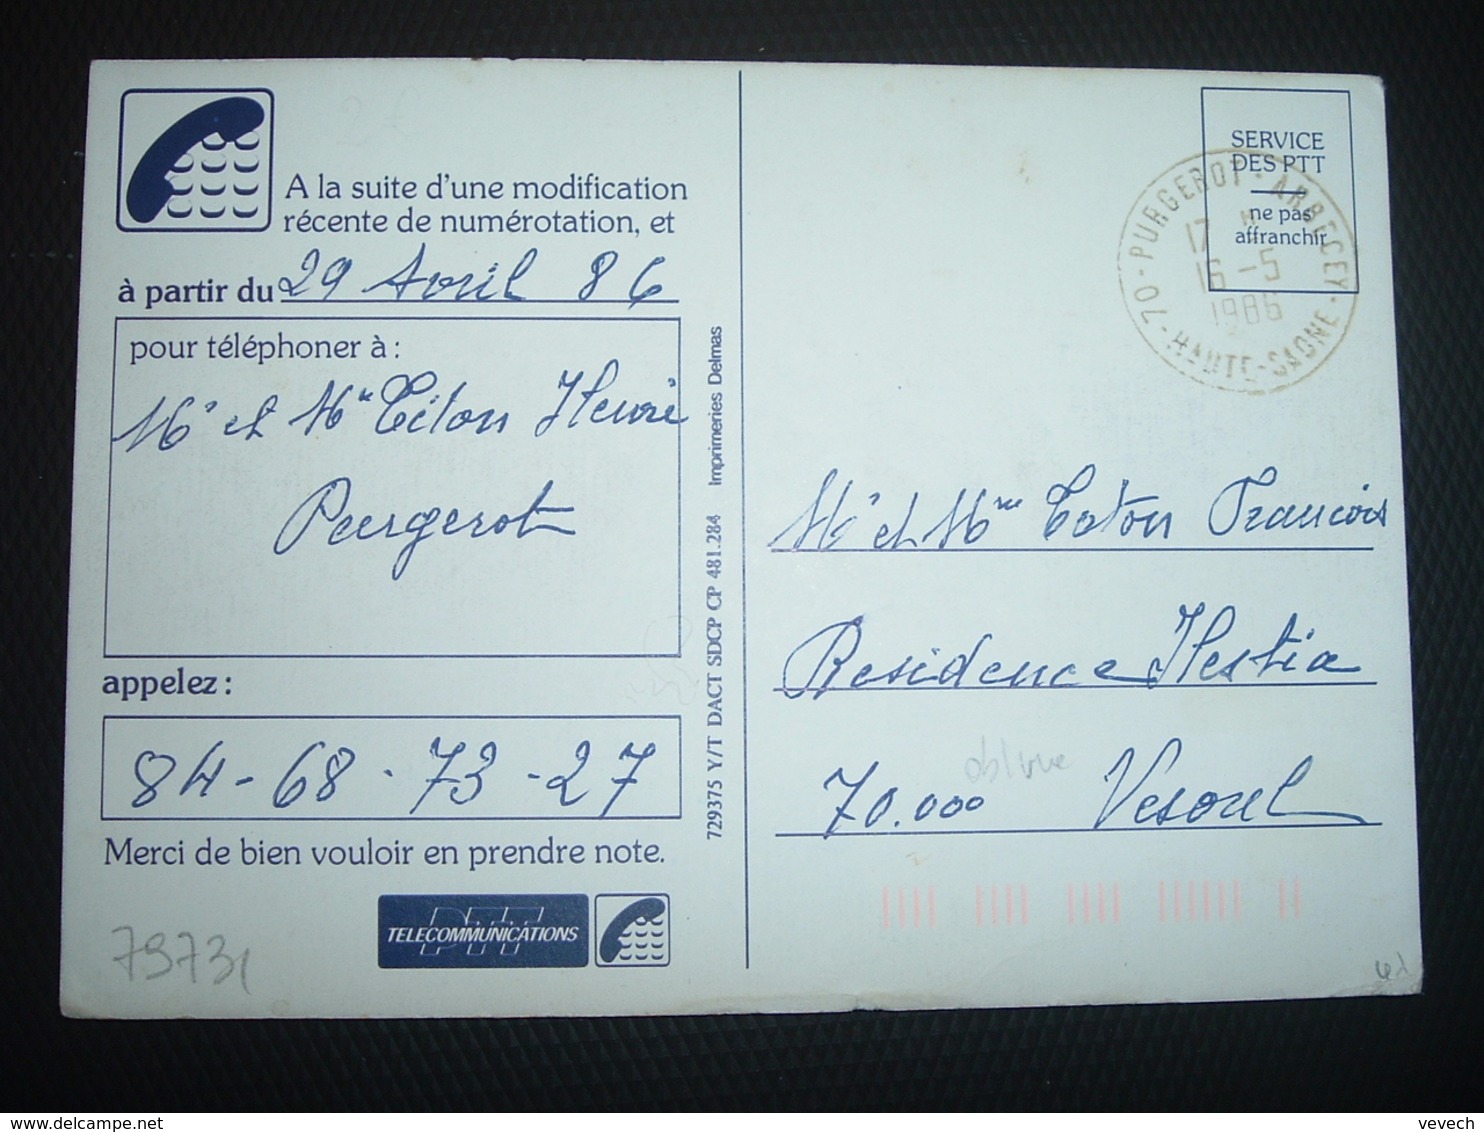 A la suite d'une modification
récente de numérotation, et
à partir du 29 Avril 86
pour téléphoner à :
Mr et Mme Titon Henri
Purgerot
appelez :
84-68-73-27
Merci de bien vouloir en prendre note.
PTT
TELECOMMUNICATIONS
79731
729375 Y/T DACT SDCP CP 481.284 Imprimeries Delmas
SERVICE
DES PTT
ne pas
affranchir
70-PURGEROT-ARBECEY-HAUTE-SAONE
17 H
16-5
1986
Mr et Mme Toton Francois
Residence Hestia
70.000 Vesoul
vevech